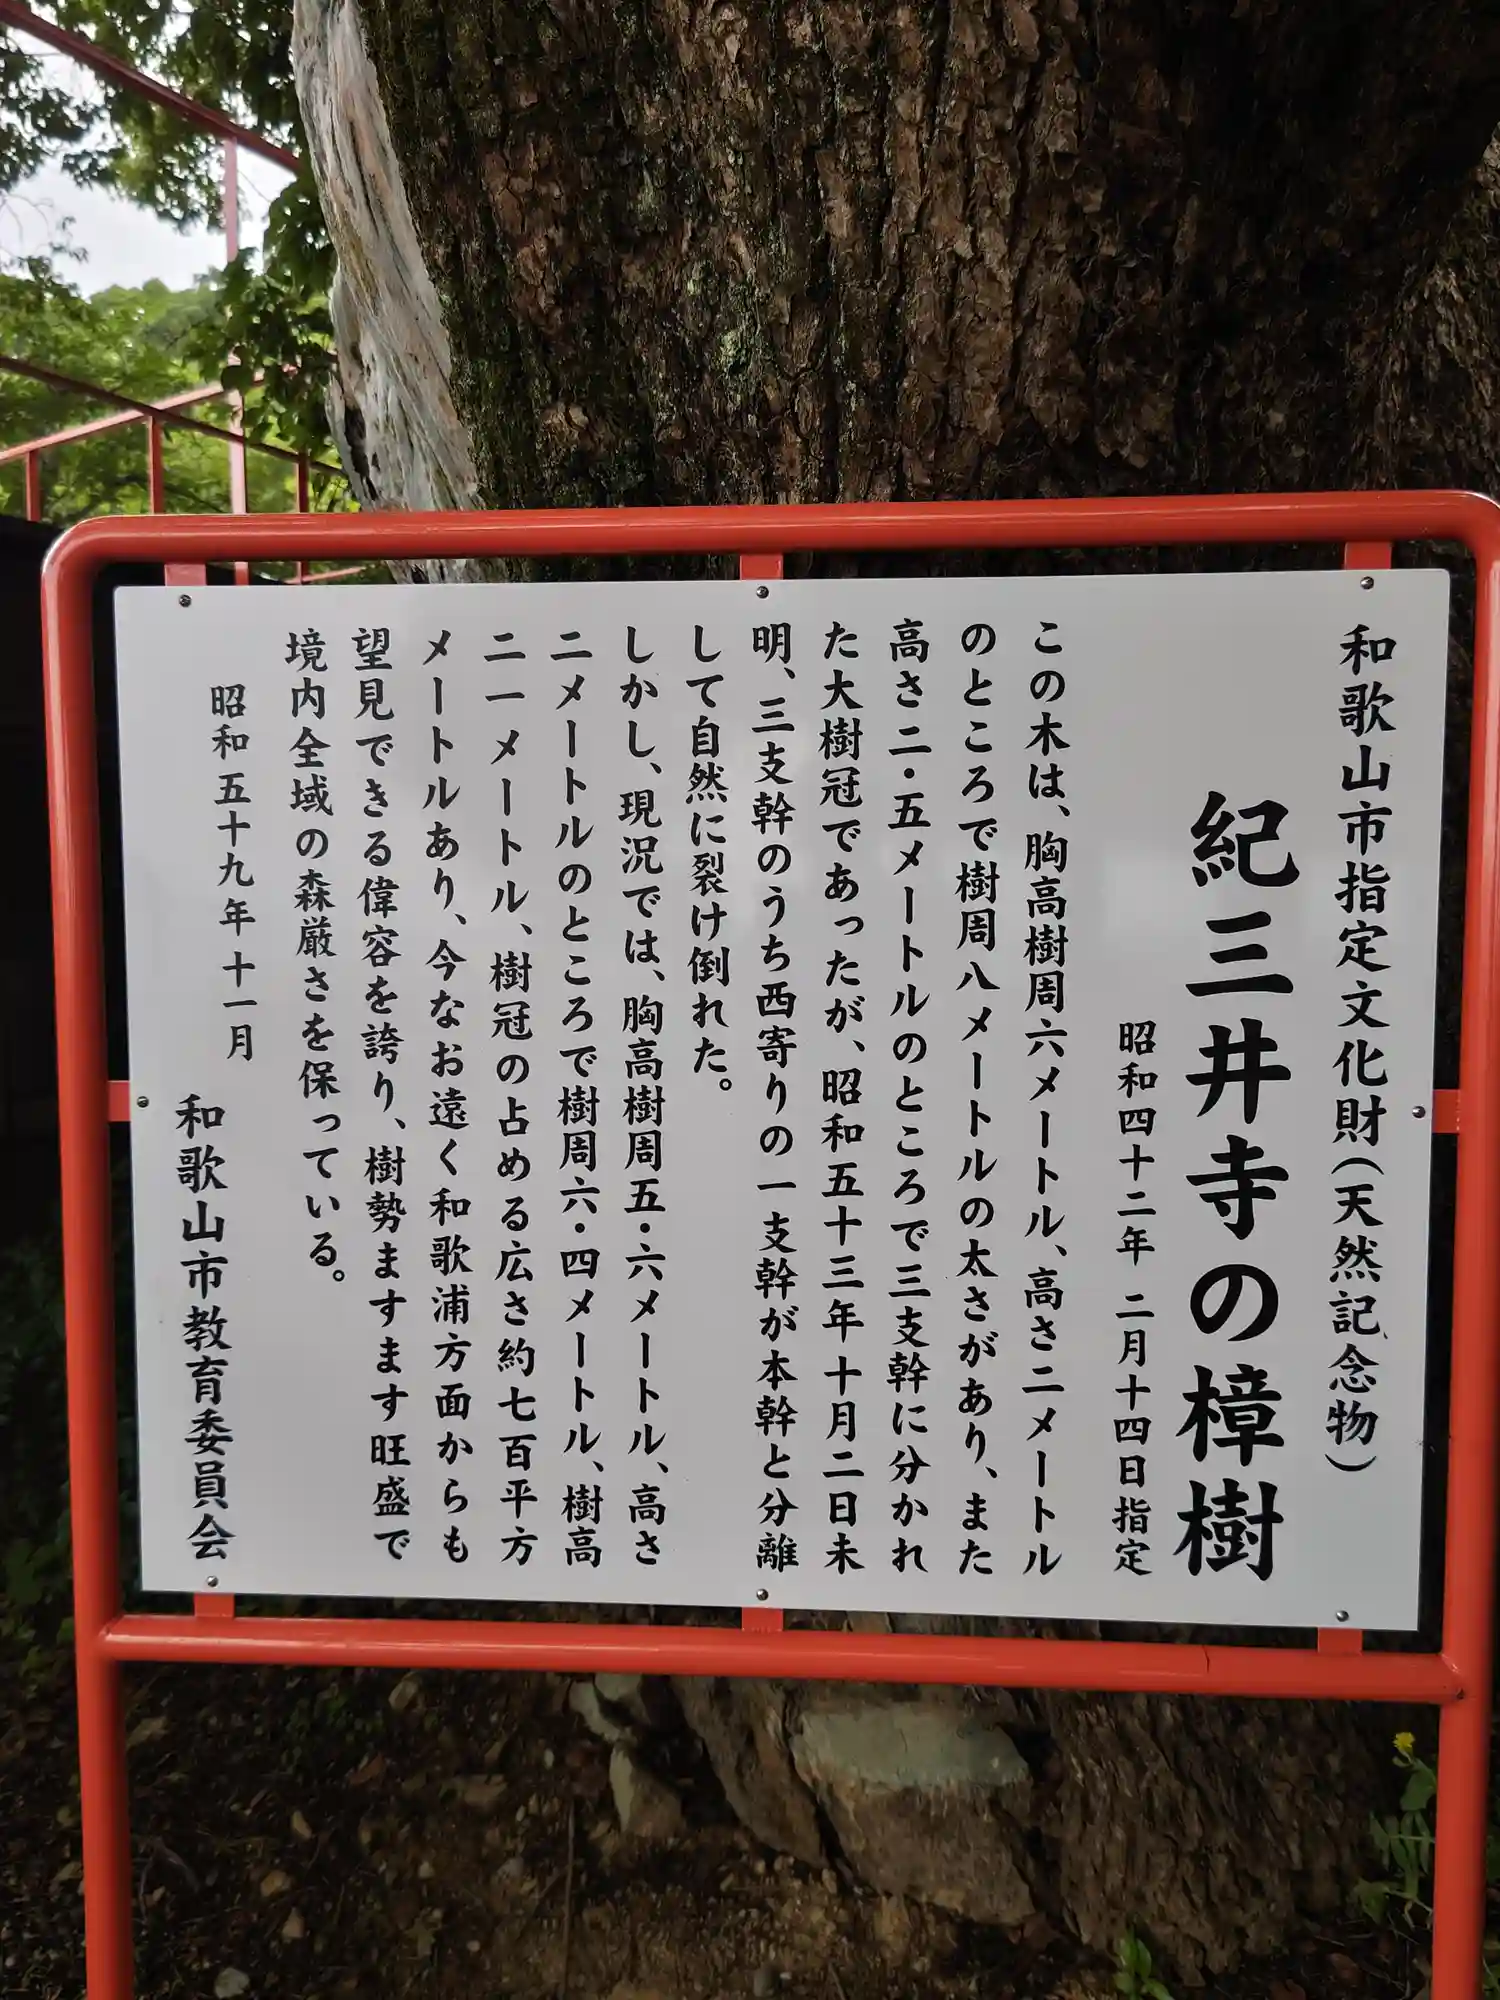 和歌山市指定文化財(天然記念物)
紀三井寺の樟樹
昭和四十二年 二月十四日指定
この木は、胸高樹周六メートル、高さ二メートル
のところで樹周八メートルの太さがあり、また
高さ二・五メートルのところで三支幹に分かれ
た大樹冠であったが、昭和五十三年十月二日未
明、三支幹のうち西寄りの一支幹が本幹と分離
して自然に裂け倒れた。
しかし、現況では、胸高樹周五・六メートル、高さ
二メートルのところで樹周六・四メートル、樹高
二一メートル、樹冠の占める広さ約七百平方
メートルあり、今なお遠く和歌浦方面からも
望見できる偉容を誇り、樹勢ますます旺盛で
境内全域の森厳さを保っている。
昭和五十九年十一月
和歌山市教育委員会